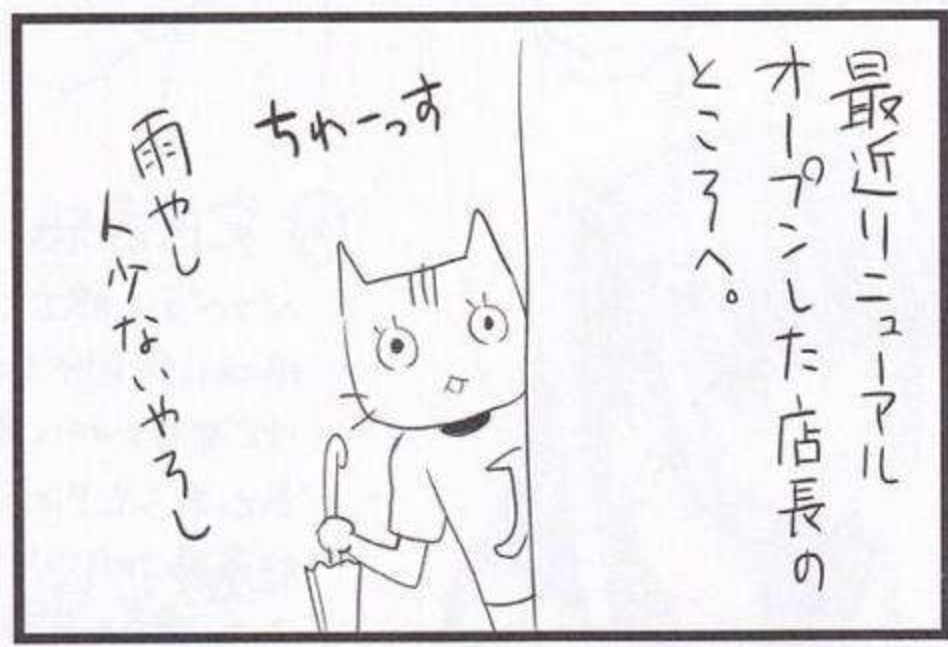 最近リニューアル
オープンした店長の
ところへ。
ちわーっす
雨やし
人少ないやろし